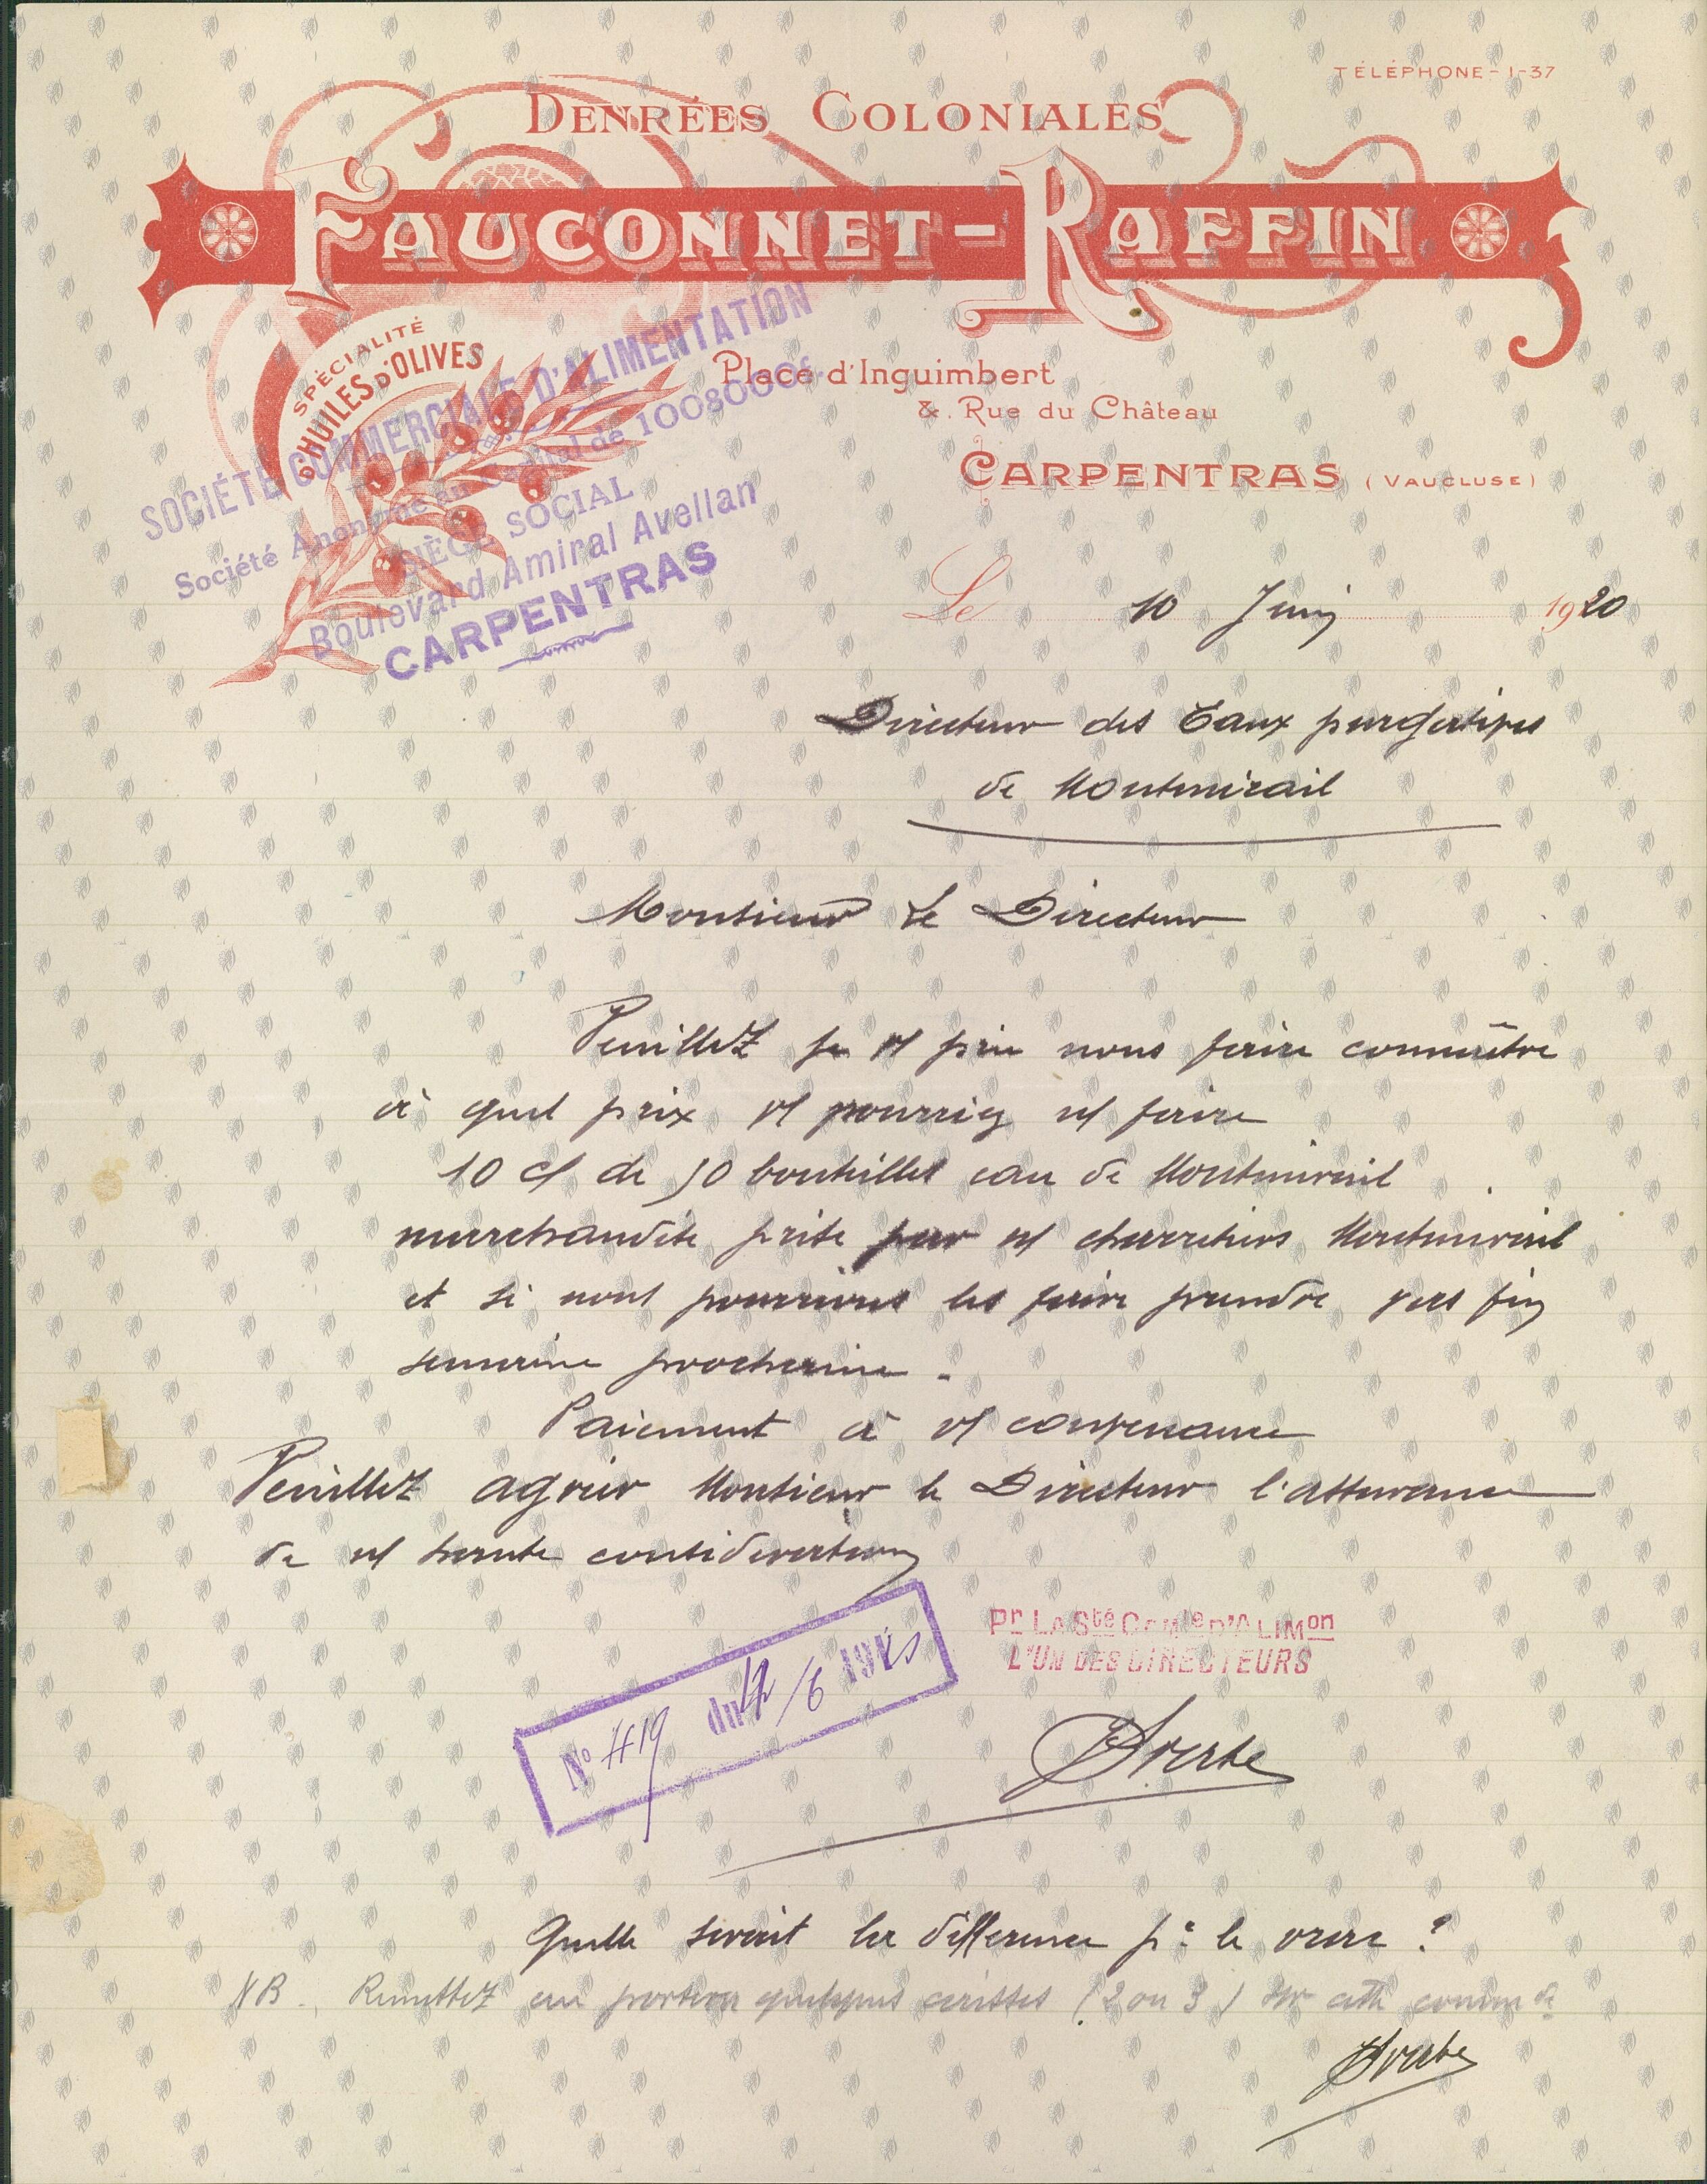 TÉLÉPHONE - 1-37
DENRÉES COLONIALES
FAUCONNET-RAFFIN
SPÉCIALITÉ
D'HUILES D'OLIVES
Place d'Inguimbert
& Rue du Château
CARPENTRAS (VAUCLUSE)
SOCIÉTÉ COMMERCIALE D'ALIMENTATION
Société Anonyme au Capital de 1008000 f.
SIÈGE SOCIAL
Boulevard Amiral Avellan
CARPENTRAS
Le 10 Juin 1920
Directeur des Eaux purgatives
de Montmirail
Monsieur Le Directeur
Veuillez je v/ prie nous faire connaître
à quel prix v/ pourriez n/ faire
10 c/ de 50 bouteilles eau de Montmirail
marchandise prise par n/ charretiers Montmirail
et si nous pourrions les faire prendre vers fin
semaine prochaine.
Paiement à v/ convenance
Veuillez agréer Monsieur le Directeur l'assurance
de n/ haute considération
Pr LA Sté Comle D'ALIMon
L'UN DES DIRECTEURS
N° 419 du 12/6 192
Quelle serait la différence pr le
NB. Remettez au porteur quelques caisses (2 ou 3) sur cette comm de